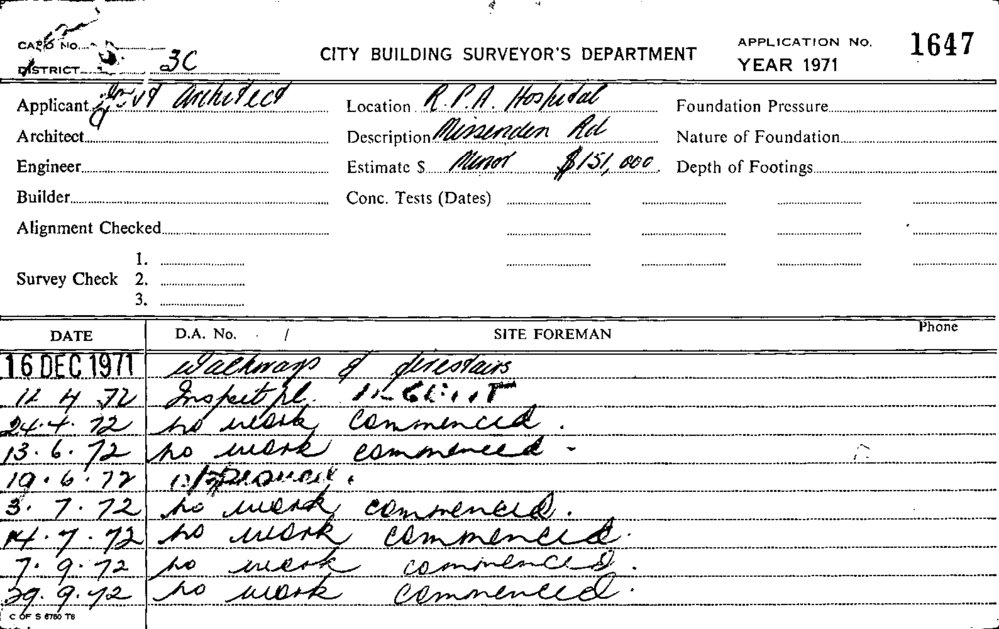 CARD NO.
DISTRICT 3C
CITY BUILDING SURVEYOR'S DEPARTMENT
APPLICATION No. 1647
YEAR 1971
Applicant Govt Architect
Location R.P.A. Hospital
Foundation Pressure
Architect
Description Missenden Rd
Nature of Foundation
Engineer
Estimate $ Minor $151,000
Depth of Footings
Builder
Conc. Tests (Dates)
Alignment Checked
Survey Check 1.
2.
3.
DATE D.A. No. / SITE FOREMAN Phone
16 DEC 1971 Walkways & firestairs
4 72 Inspect pl.
24.4.72 no work commenced.
13.6.72 no work commenced -
19.6.72
3.7.72 no work commenced.
14.7.72 no work commenced.
7.9.72 no work commenced.
29.9.72 no work commenced.
C OF S 6760 T8